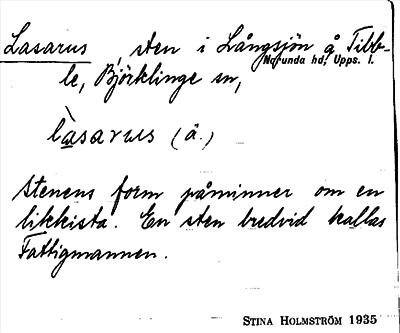 Lasarus, sten i Långsjön å Tibb-
Norunda hd, Upps. l.
le, Björklinge sn,
làsarus (ä.)
Stenens form påminner om en
likkista. En sten bredvid kallas
Fattigmannen.
STINA HOLMSTRÖM 1935